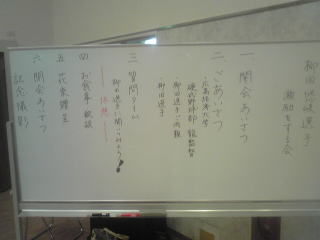 柳田 悠岐 選手
激励をする会
一 開会あいさつ
二 ごあいさつ
・広島経済大学
硬式野球部 龍監督
・柳田選手ご両親
・柳田選手
三 質問タイム
柳田選手に聞いてみよう!
四 お食事 歓談
五 花束贈呈
六 閉会あいさつ
記念撮影